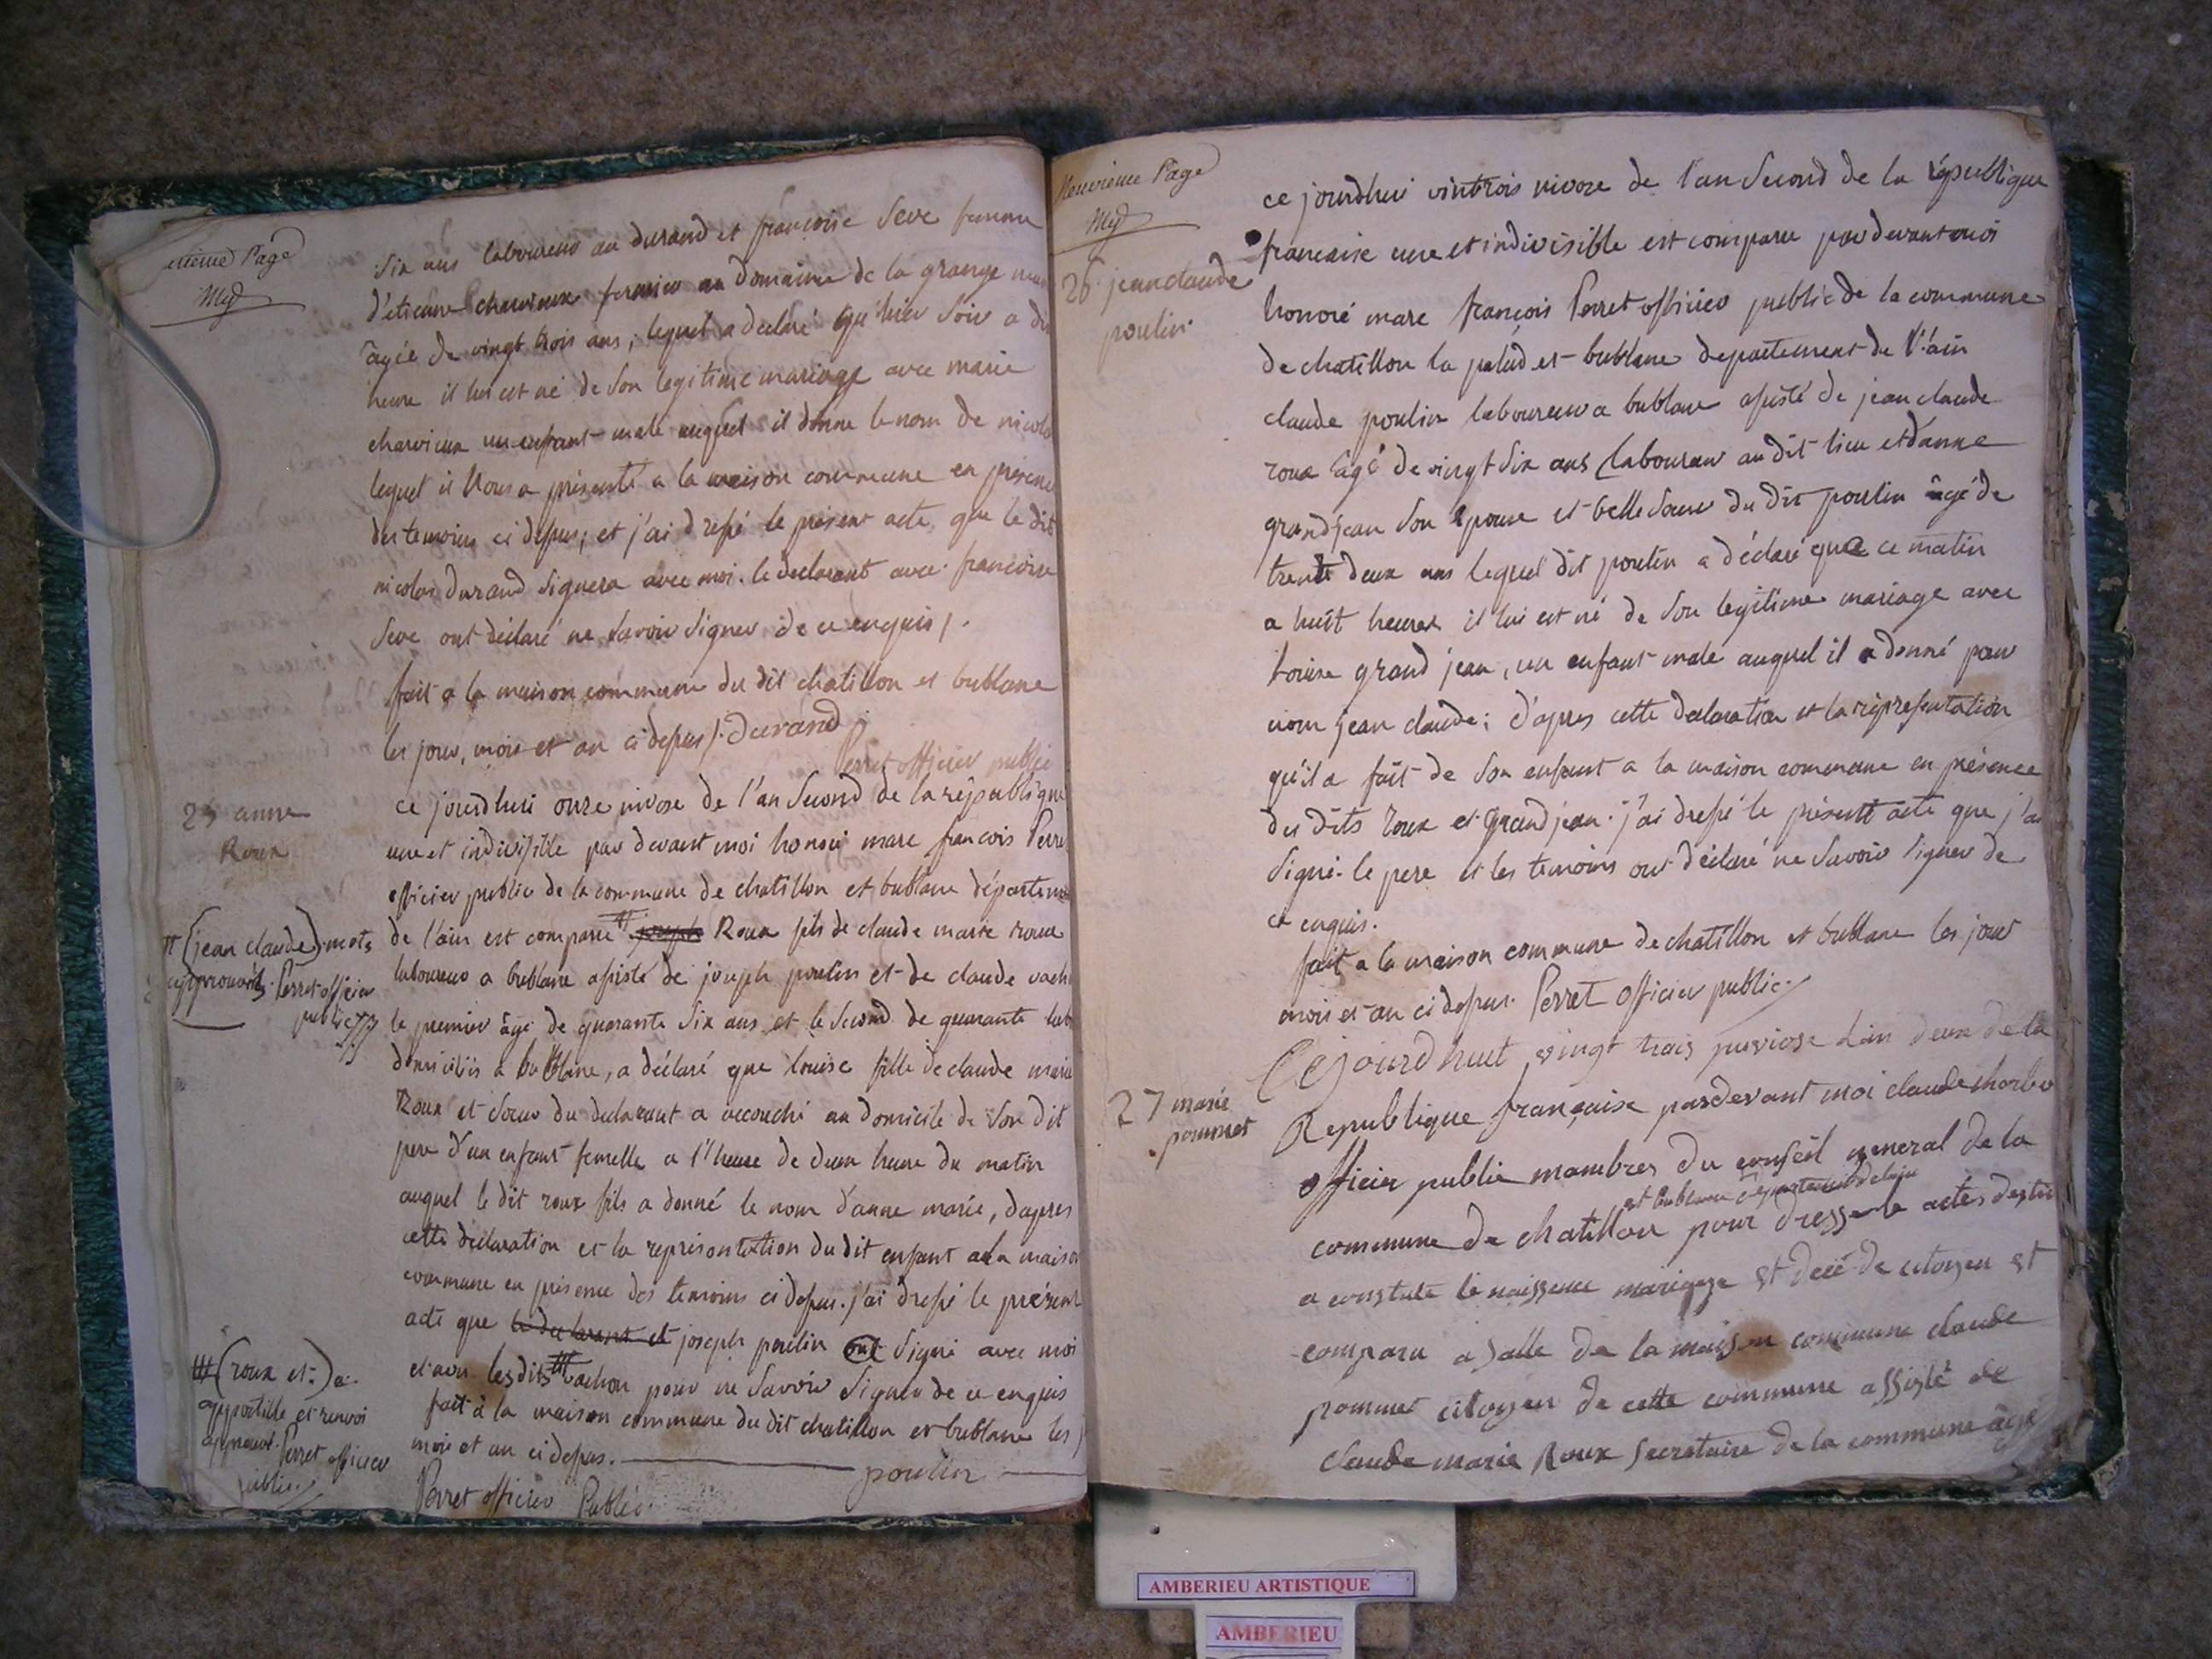 Six ans laboureur au durand et françoise Seve femme
d'étienne charvieux fermier au domaine de la grange
âgée de vingt trois ans, lequel a declaré qu'hier Soir a
heure il lui est né de Son legitime mariage avec marie
charvieux un enfant male auquel il donne le nom de nicolas
lequel il Nous a présenté a la maison commune en présence
des temoins ci dessus, et j'ai dressé le présent acte que le dit
nicolas durand Signera avec moi. le declarant avec françoise
Seve ont déclaré ne Savoir Signer de ce enquis /.
fait a la maison commune du dit chatillon et bublane
les jour, mois et an ci dessus /. durand
Perret officier public
25 anne
Roux
ce jourdhui onze nivose de l'an Second de la république
une et indivisible par devant moi honoré marc françois Perret
officier public de la commune de chatillon et bublane départeme
de l'ain est comparu joseph Roux fils de claude marie roux
(jean claude) mots
approuvés. Perret officier
public
laboureur a bublane assisté de joseph poulin et de claude vach
le premier âgé de quarante Six ans et le Second de quarante
domiciliés a bublane, a déclaré que louise fille de claude marie
Roux et Soeur du declarant a accouché au domicile de Son dit
pere d'un enfant femelle a l'heure de deux heure du matin
auquel le dit roux fils a donné le nom d'anne marie, d'apres
cette déclaration et la représentation du dit enfant a la maison
commune en présence des temoins ci dessus. j'ai dressé le présent
acte que le declarant et joseph poulin ont Signé avec moi
et non lesdits vachon pour ne Savoir Signer de ce enquis
(roux et.) a.
apostille et renvoi
approuvé. Perret officier
public.
fait à la maison commune du dit chatillon et bublane les j
mois et an ci dessus. poulin
Perret officier Public.
Neuvieme Page
26 jean claude
poulin.
ce jourdhui vintrois nivose de l'an Second de la république
francaise une et indivisible est comparu par devant moi
honoré marc françois Perret officier public de la commune
de chatillon la palud et bublane departement de l'ain
claude poulin laboureur a bublane assisté de jean claude
roux âgé de vingt Six ans laboureur au dit lieu et d'anne
grandjean Son epouse et belle Soeur du dit poulin âgé de
trente deux ans lequel dit poulin a déclaré que ce matin
a huit heures il lui est né de Son legitime mariage avec
louise grand jean, un enfant male auquel il a donné pour
nom jean claude; d'apres cette declaration et la répresentation
qu'il a fait de Son enfant a la maison commune en présence
des dits roux et grandjean. j'ai dressé le présent acte que j'ai
Signé. le pere et les temoins ont déclaré ne Savoir Signer de
ce enquis.
fait a la maison commune de chatillon et bublane les jour
mois et an ci dessus. Perret officier public.
27 marie
pommet
Cejourdhuit vingt trois puviose l'an deux de la
Republique française pardevant moi claude
officier public mambres du conseil general de la
et bublane departement de lain
commune de chatillon pour dresser le actes destin
a constate le naissence mariage et decé de citoyen et
comparu a salle de la maison commune claude
pommet citoyen de cette commune assisté de
claude marie Roux Secretaire de la commune âgé
AMBERIEU ARTISTIQUE
AMBERIEU